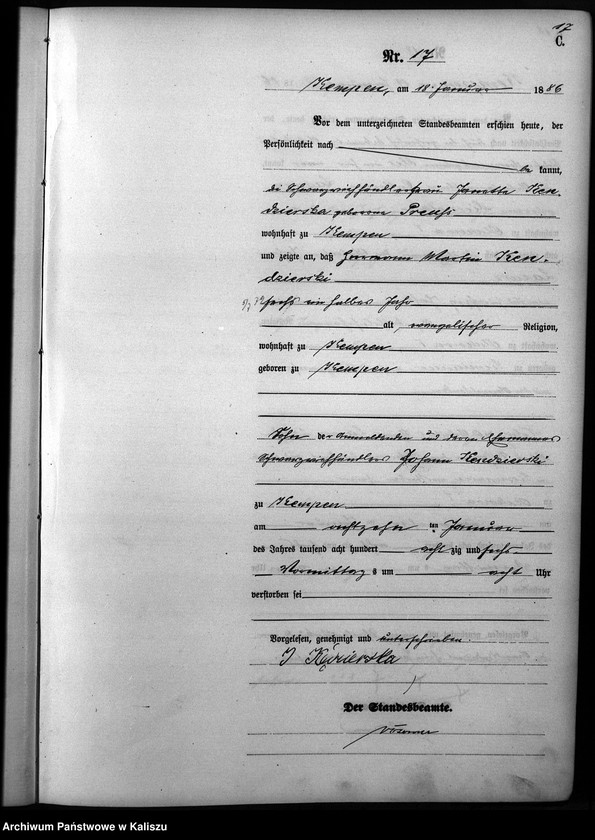 17
C.
Nr. 17
Kempen, am 18. Januar 1886
Vor dem unterzeichneten Standesbeamten erschien heute, der
Persönlichkeit nach
be kannt,
die Schwarzviehhändlersfrau Janetta Ken-
dzierska geborene Preuß
wohnhaft zu Kempen
und zeigte an, daß Hermann Martin Ken-
dzierski
sechs ein halbes Jahr
alt, evangelischer Religion,
wohnhaft zu Kempen
geboren zu Kempen
Sohn der Anmeldenden und deren Ehemannes
Schwarzviehhändlers Johann Kendzierski
zu Kempen
am achtzehn ten Januar
des Jahres tausend acht hundert acht zig und sechs
Vormittag s um acht Uhr
verstorben sei
Vorgelesen, genehmigt und unterschrieben.
J
Der Standesbeamte.
Archiwum Państwowe w Kaliszu